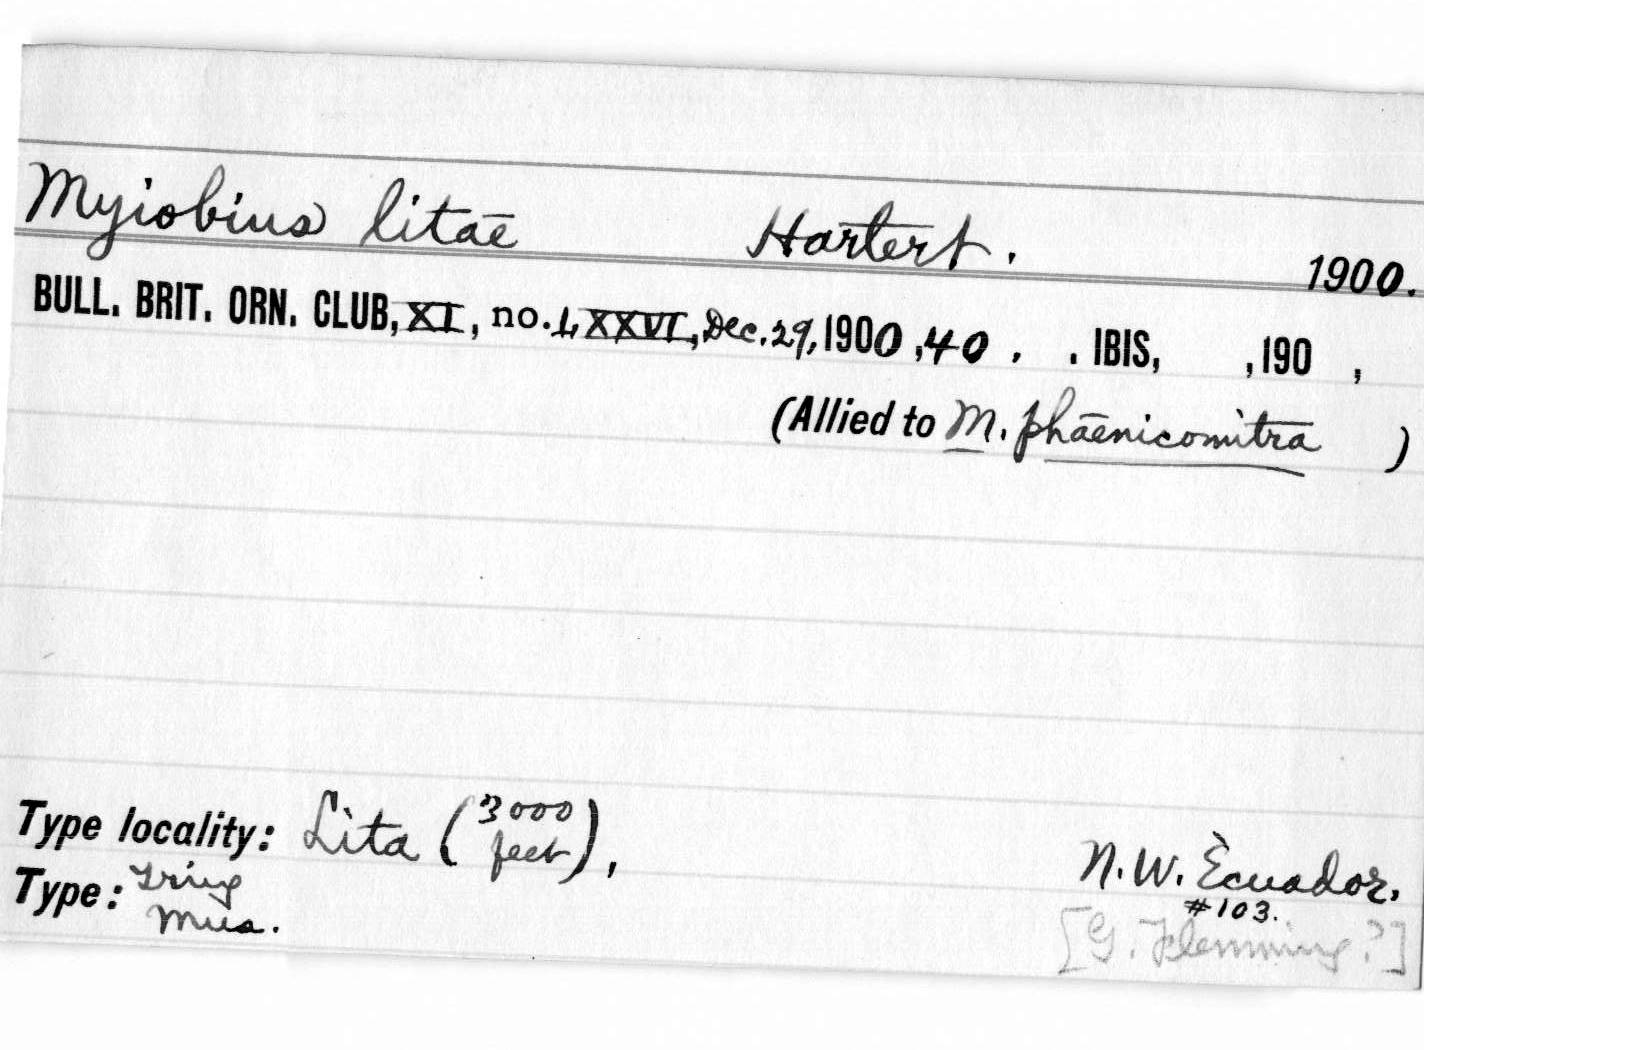 Myiobius litae Hartert. 1900.
BULL. BRIT. ORN. CLUB, XI, no. LXXVI, Dec. 29, 1900, 40. . IBIS, , 190 ,
(Allied to M. phaenicomitra )
Type locality: Lita (3000 feet), N.W. Ecuador.
Type: Tring Mus. #103.
[G. Flemming?]